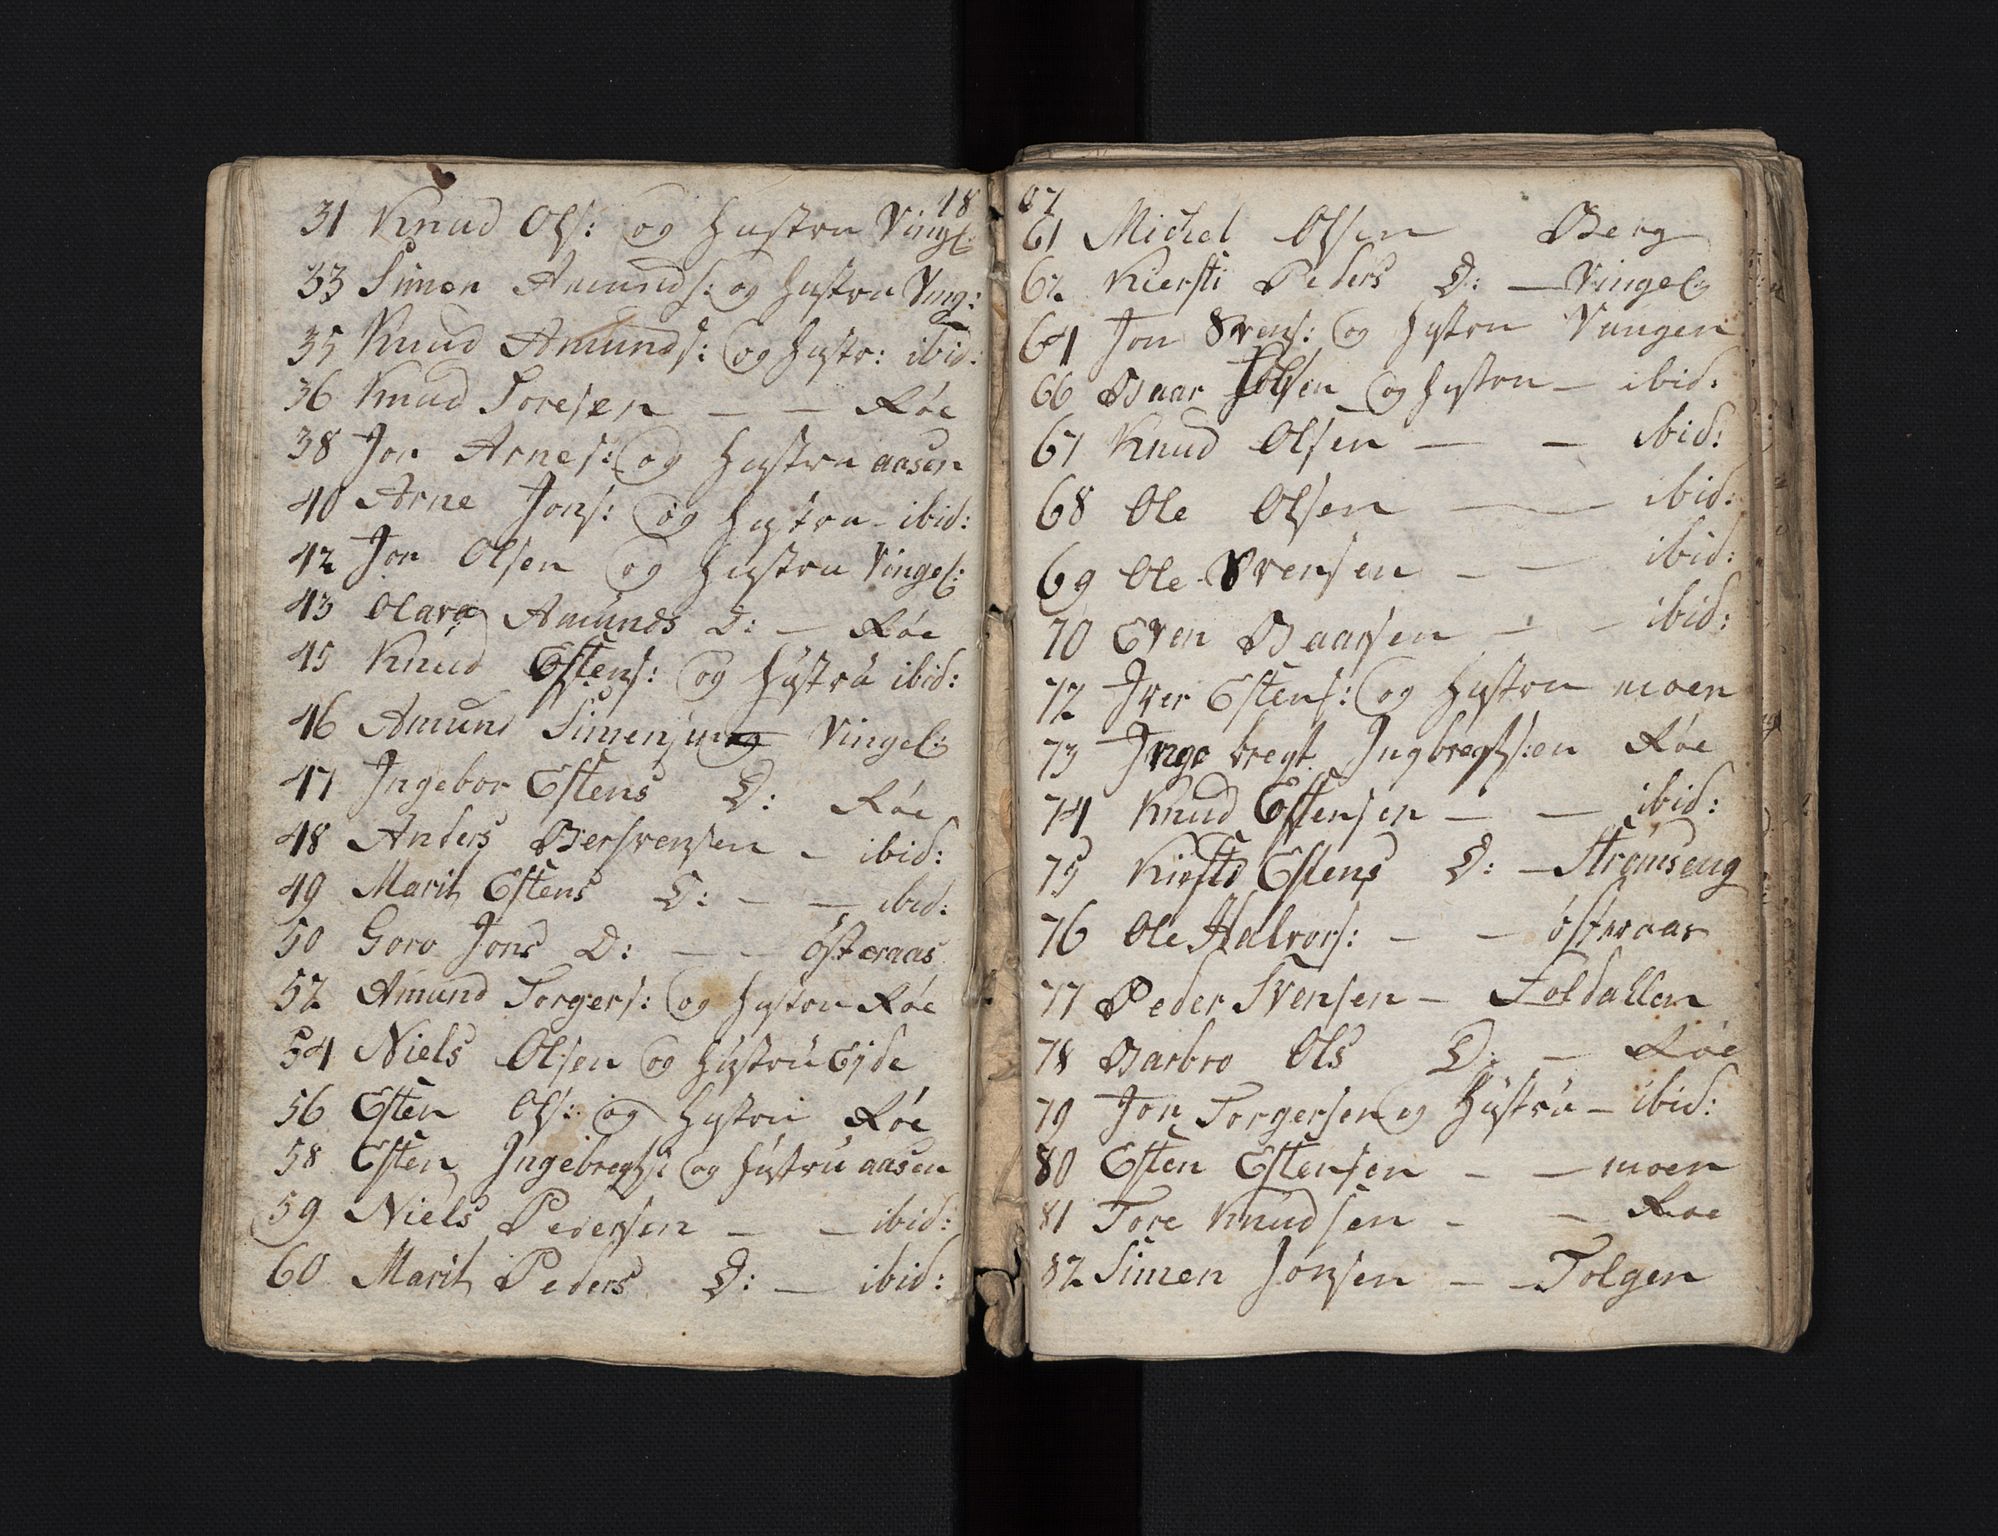 18
31 Knud Ols: og hustru Vingl:
33 Simen Amunds: og hustru Ving:
35 Knud Amunds: og hustr: ibid:
36 Knud Toresen — — Røe
38 Jon Arnes: og hustru aasen
40 Arne Jons: og hustru - ibid:
42 Jon Olsen og hustru Vingel:
43 Olara Amunds D: — Røe
45 Knud Estens: og hustrú ibid:
46 Amund Simens Vingel:
47 Ingebor Estens D: Røe
48 Anders Bersvensen - ibid:
49 Marit Estens D: — — ibid:
50 Goro Jons D: — — østeraas
52 Amund Torgers: og hustru Røe
54 Niels Olsen og hustrú Ejde
56 Esten Ols: og hustru Røe
58 Esten Ingebregts: og hustrú aasen
59 Niels Pedersen — — ibid:
60 Marit Peders D: — ibid:
61 Michel Olsen Berg
62 Kiersti Peders D: — Vingel:
64 Jon Svens: og hustru Vangen
66 Baar Olsen og hustru — ibid:
67 Knud Olsen — — ibid:
68 Ole Olsen — — ibid:
69 Ole Svensen — — ibid:
70 Even Baarsen — — ibid:
72 Iver Estens: og hustru moen
73 Inge bregt Ingbregts:en Røe
74 Knud Estensen — — ibid:
75 Kirsti Estens D: — Strømseng
76 Ole Halvors: — — østeraas
77 Peder Svensen — Foldallen
78 Barbro Ols D: — Røe
79 Jon Torgersen og hustrú — ibid:
80 Esten Estensen — — moen
81 Tore Knudsen — — Røe
82 Simen Jonsen — — Tolgen